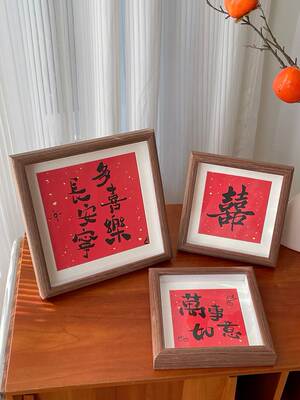 多喜樂
長安寧
囍
萬事
如意